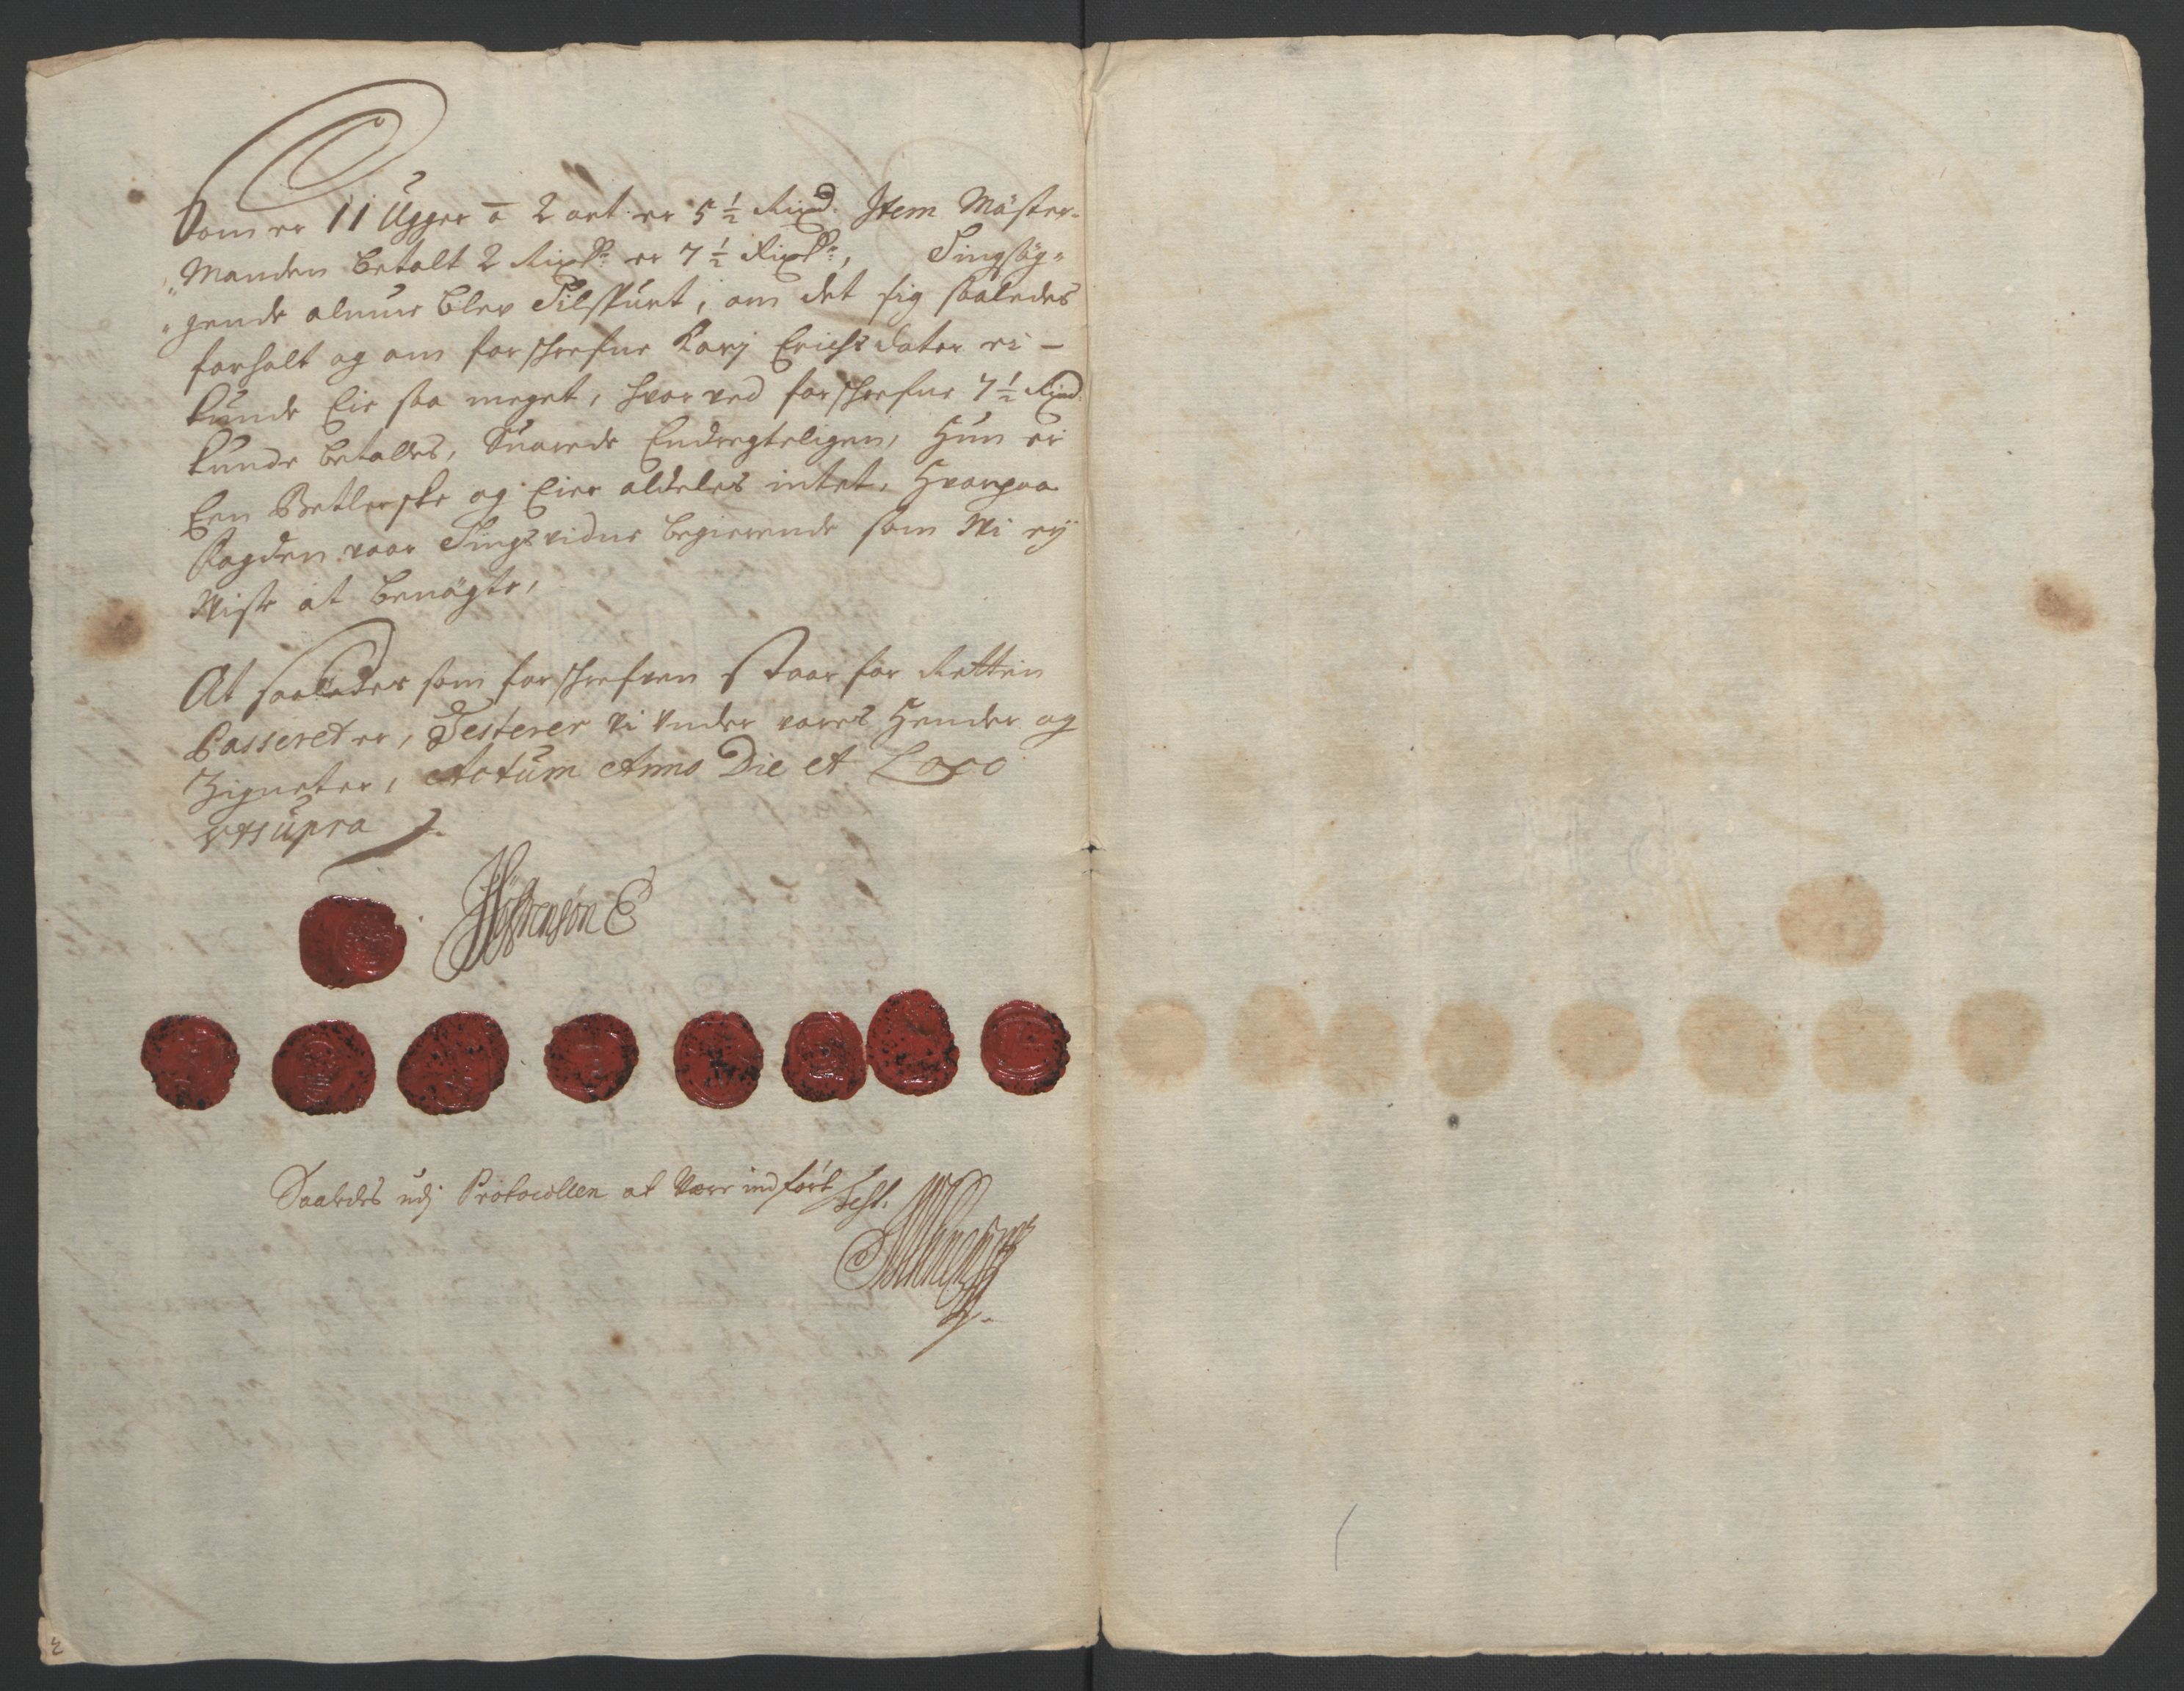 Som er 11 Ugger a 2 ort er 5 ½ Rixd. Item Mäster-
"Manden betalt 2 Rixdr er 7 ½ Rixdr, Tingsög"
"gende almue blev Tilspurt, om det sig saaledes
forholt og om forschrefne Karj Erichsdater ei -
kunde Eie saa meget, hvor ved forschrefne 7 ½ Rixd.
kunde betalles, Suarede Endregteligen, Hun er
Een Betlerske og Eier aldeles intet, Hvorpaa
Fogden vaar Tingsvidne begierende som Wi ey
Wiste at benägte,
At saaledes som forschrefven Staar for Retten
Passeret er, Testerer Vi Under vores Hender og
Zigneter, Actum Anno Die et Loco
ut supra
Saaledes udj Protocollen at være indført
Test.
2